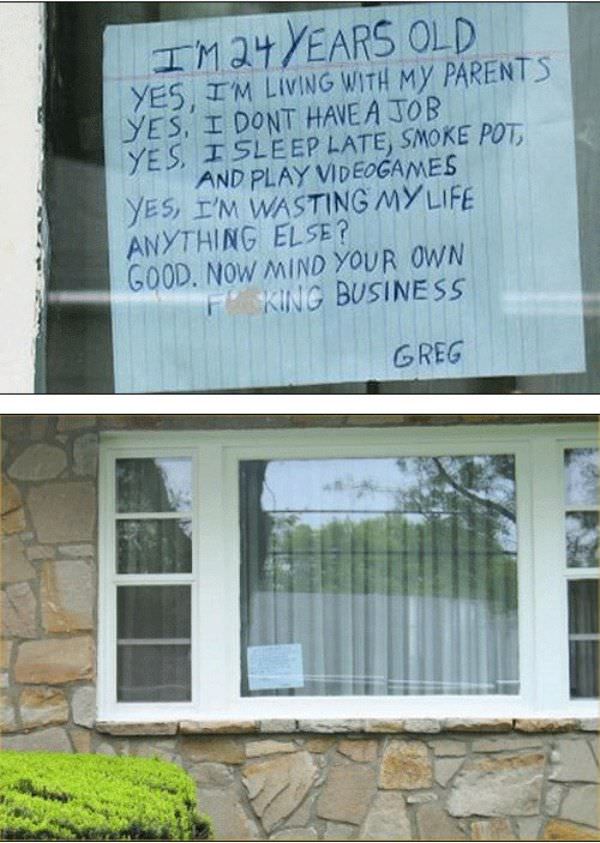 I'M 24 YEARS OLD
YES, I'M LIVING WITH MY PARENTS
YES, I DONT HAVE A JOB
YES, I SLEEP LATE, SMOKE POT,
AND PLAY VIDEOGAMES
YES, I'M WASTING MY LIFE
ANYTHING ELSE?
GOOD. NOW MIND YOUR OWN
F KING BUSINESS
GREG